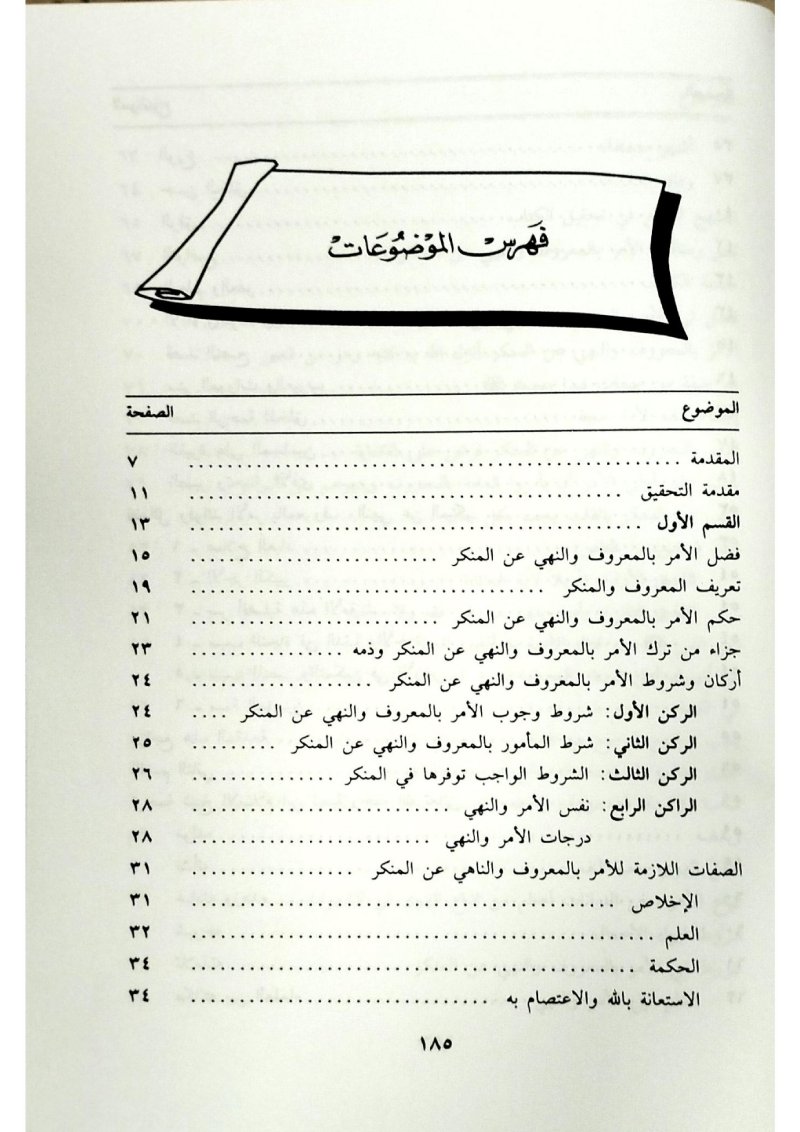 فَهرسْ المَوْضُوعَات
الموضوع الصفحة
المقدمة ................................................ ٧
مقدمة التحقيق .......................................... ١١
القسم الأول ............................................ ١٣
فضل الأمر بالمعروف والنهي عن المنكر ......................... ١٥
تعريف المعروف والمنكر .................................. ١٩
حكم الأمر بالمعروف والنهي عن المنكر ......................... ٢١
جزاء من ترك الأمر بالمعروف والنهي عن المنكر وذمه ............. ٢٣
أركان وشروط الأمر بالمعروف والنهي عن المنكر .................. ٢٤
الركن الأول: شروط وجوب الأمر بالمعروف والنهي عن المنكر .... ٢٤
الركن الثاني: شرط المأمور بالمعروف والنهي عن المنكر ......... ٢٥
الركن الثالث: الشروط الواجب توفرها في المنكر .............. ٢٦
الراكن الرابع: نفس الأمر والنهي .......................... ٢٨
درجات الأمر والنهي ........................ ٢٨
الصفات اللازمة للأمر بالمعروف والناهي عن المنكر ................ ٣١
الإخلاص .......................................... ٣١
العلم .............................................. ٣٢
الحكمة ............................................ ٣٤
الاستعانة بالله والاعتصام به .............................. ٣٤
١٨٥